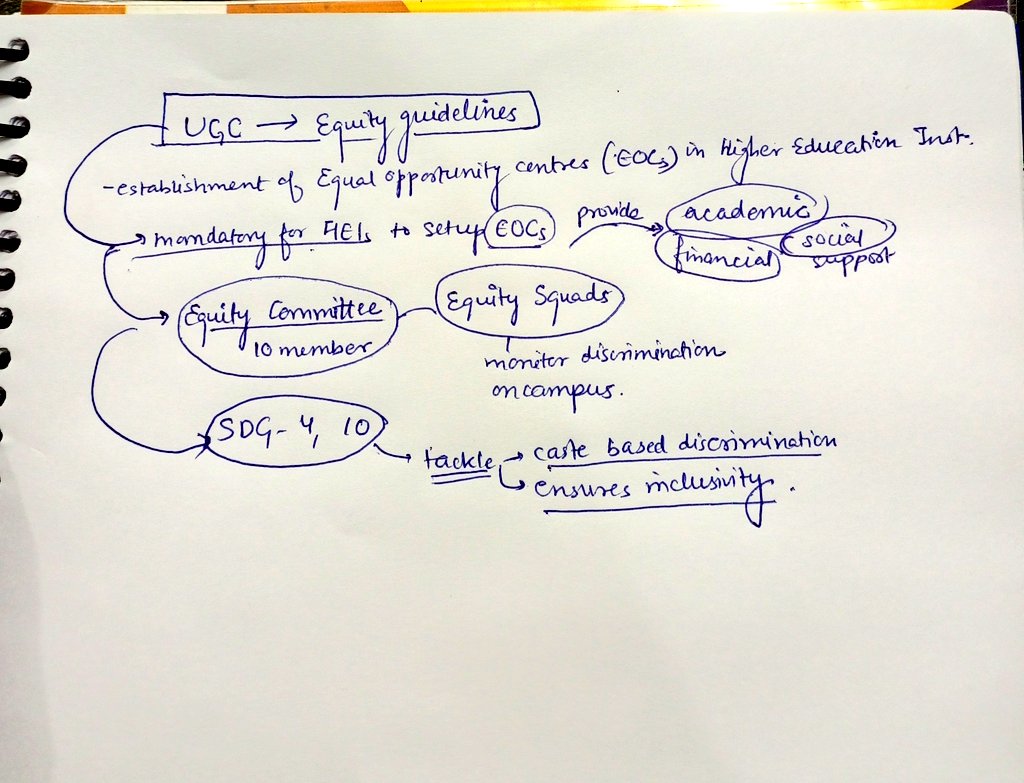 UGC → Equity guidelines
- establishment of Equal opportunity centres (EOCs) in Higher Education Inst.
→ mandatory for HEIs to setup EOCs provide → academic
financial social
support
Equity Committee Equity Squads
10 member
monitor discrimination
on campus.
SDG - 4, 10
→ tackle → caste based discrimination
→ ensures inclusivity.